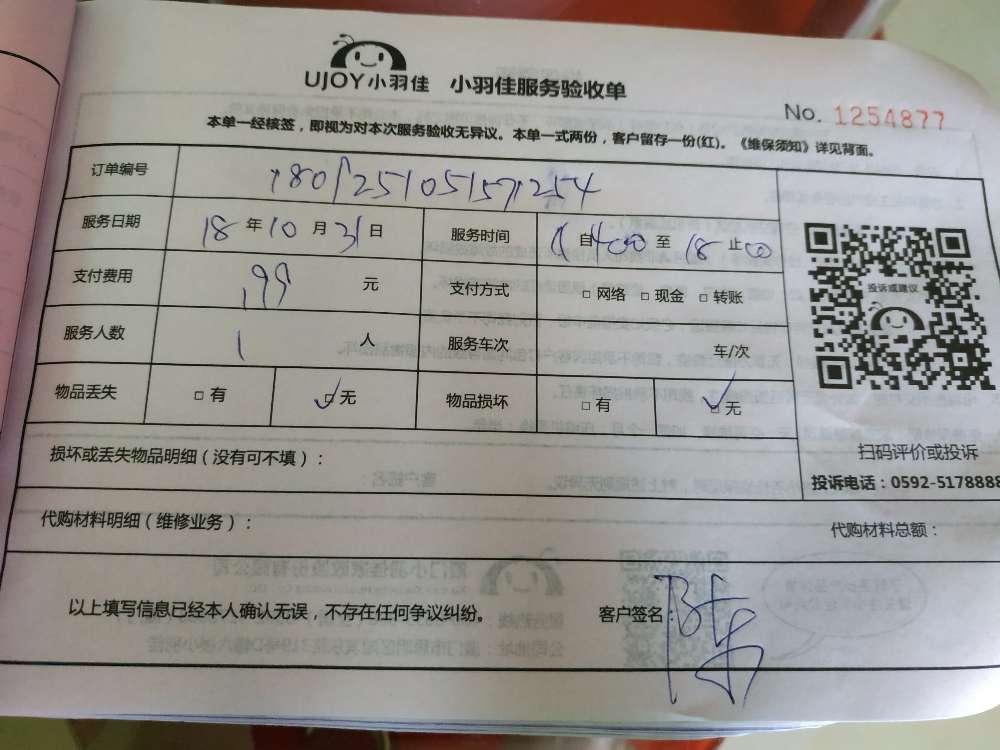 UJOY小羽佳 小羽佳服务验收单
No. 1254877
本单一经核签，即视为对本次服务验收无异议。本单一式两份，客户留存一份(红)。《维保须知》详见背面。
订单编号
服务日期 18 年 10 月 31 日 服务时间 自 14:00 至 18 止 00
支付费用 199 元 支付方式 □ 网络 □ 现金 □ 转账
服务人数 1 人 服务车次 车/次
物品丢失 □ 有 ☑ 无 物品损坏 □ 有 ☑ 无
投诉或建议
扫码评价或投诉
投诉电话：0592-5178888
损坏或丢失物品明细（没有可不填）：
代购材料明细（维修业务）： 代购材料总额：
以上填写信息已经本人确认无误，不存在任何争议纠纷。 客户签名：